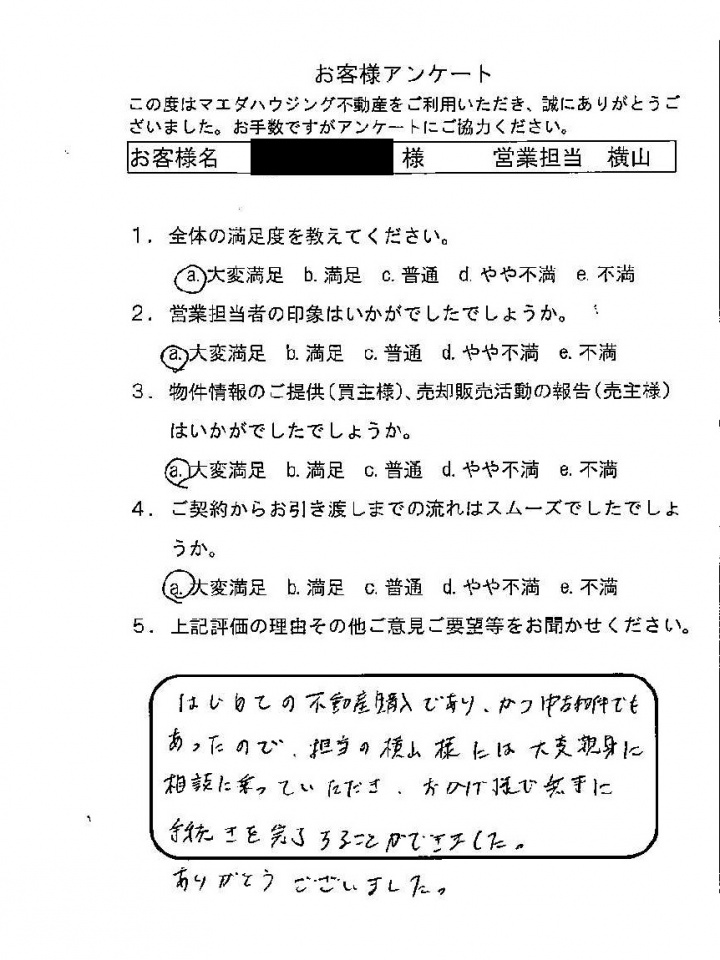 お客様アンケート
この度はマエダハウジング不動産をご利用いただき、誠にありがとうご
ざいました。お手数ですがアンケートにご協力ください。
お客様名 様 営業担当 横山
1. 全体の満足度を教えてください。
a.大変満足 b.満足 c.普通 d.やや不満 e.不満
2. 営業担当者の印象はいかがでしたでしょうか。
a.大変満足 b.満足 c.普通 d.やや不満 e.不満
3. 物件情報のご提供(買主様)、売却販売活動の報告(売主様)
はいかがでしたでしょうか。
a.大変満足 b.満足 c.普通 d.やや不満 e.不満
4. ご契約からお引き渡しまでの流れはスムーズでしたでしょ
うか。
a.大変満足 b.満足 c.普通 d.やや不満 e.不満
5. 上記評価の理由その他ご意見ご要望等をお聞かせください。
はじめての不動産購入であり、かつ中古物件でも
あったので、担当の横山様には大変親身に
相談に乗っていただき、おかげ様で無事に
手続きを完了することができました。
ありがとうございました。